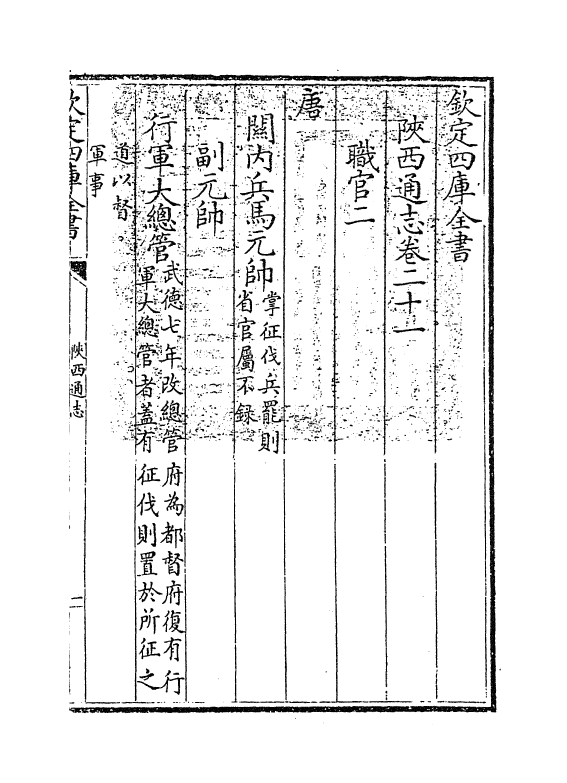 欽定四庫全書
陝西通志卷二十一
職官二
唐
關內兵馬元帥掌征伐兵罷則
省官屬不錄
副元帥
行軍大總管武德七年改總管府為都督府復有行
軍大總管者蓋有征伐則置於所征之
道以督
軍事
欽定四庫全書
陝西通志